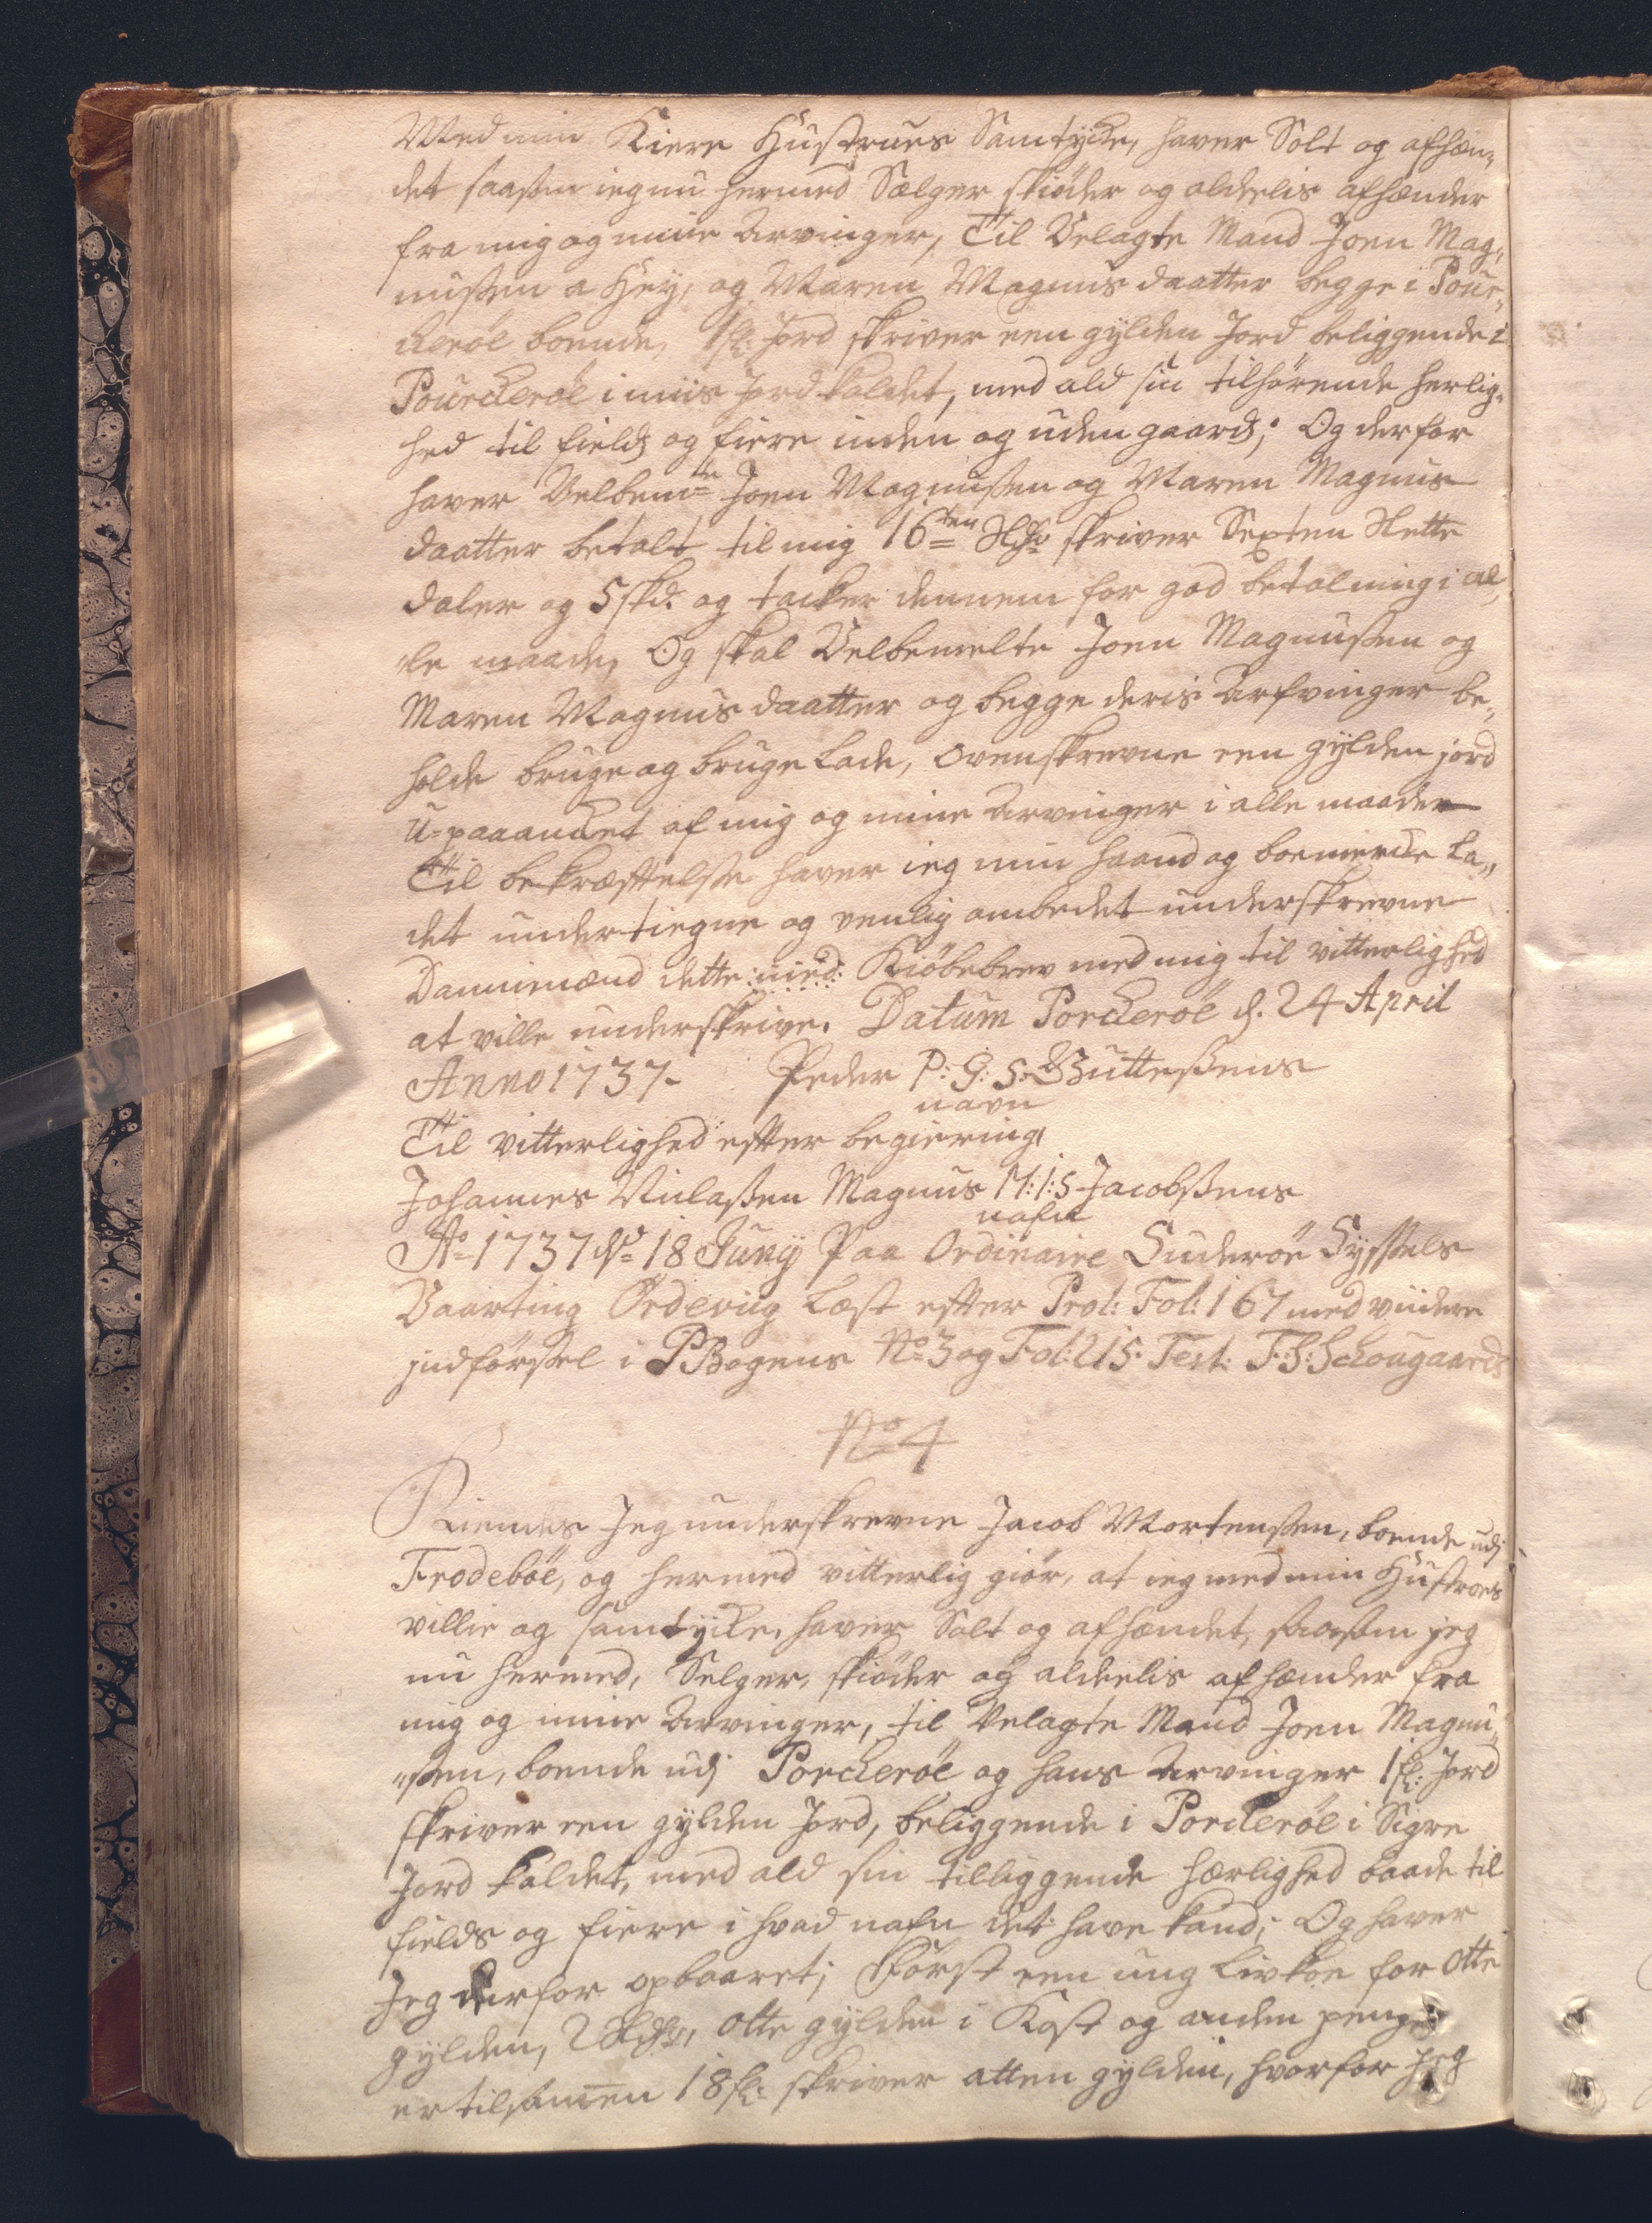 Med min Kiere Hustrues Samtÿcke, haver Solt og afhæn„
det saasom ieg nu hermed Sælger skiöder og aldeelis afhænder
fra mig og mine Arvinger, Til Velagte Mand Joen Mag„
nussen a Heÿ, og Maren Magnus daatter begge i Pour„
cheröe boende, 1 fl: Jord skriver een gÿlden Jord beliggende i
Pourcheröe i miis Jord kaldet, med ald sin tilhörende herlig„
hed til fields og fiere inden og uden gaards; Og derfor
haver Velbemte Joen Magnussen og Maren Magnus
daatter betalt til mig 16ten skriver Sexten Slette
daler og 5 skd. og tacker dennem for god betalning i al„
„le maade, Og skal Velbemelte Joen Magnussen og
Maren Magnus daatter og begge deris Arfvinger be„
holde bruge og bruge Lade, ovenskrevne een gÿlden jord
U-paaancket af mig og mine Arvinger i alle maader
Til bekræfftelse haver ieg min haand og boemercke La„
det undertiegne og venlig ombedet underskrevne
Dannemænd dette :med: Kiöbebrev med mig til vitterlighed
at ville underskrive. Datum Porcheröe d. 24 April
Anno 1737. Peder P: G: S: Guttesens
navn
Til vitterlighed efter begiering,
Johannes Niclasen Magnus M: I: S Jacobsens
nafn
Ao 1737 d 18 Junÿ Paa Ordinaire Suderöe Sÿssels
Vaarting Ördeviig Læst efter Prot: Fol: 167 med viidere
jndförssel i PBogens No 3 og Fol: 215. Test: F: S: Schougaard
No 4
Kiendes Jeg underskrevne Jacob Mortensen, boende udj
Frodeböe, og hermed vitterlig giör, at ieg med min Hustroes
villie og samtÿcke, haver Solt og afhændet, saasom jeg
nu hermed, Selger, skiöder og aldeelis afhænder fra
mig og mine Arvinger, til Velagte Mand Joen Magnu„
„ssen, boende udj Porcheröe og hans Arvinger 1 fl: Jord
skriver een gÿlden Jord, beliggende i Porcheröe i Sigre
Jord kaldet, med ald sin tilliggende hærlighed baade til
fields og fiere i hvad nafn det have kand; Og haver
Jeg derfor opbaaret; Förste een ung Livkoe for Otte
gÿlden, 2 otte gÿlden i Kost og anden penge
er tilsamen 18 fl: skriver atten gÿlden, hvorfor Jeg